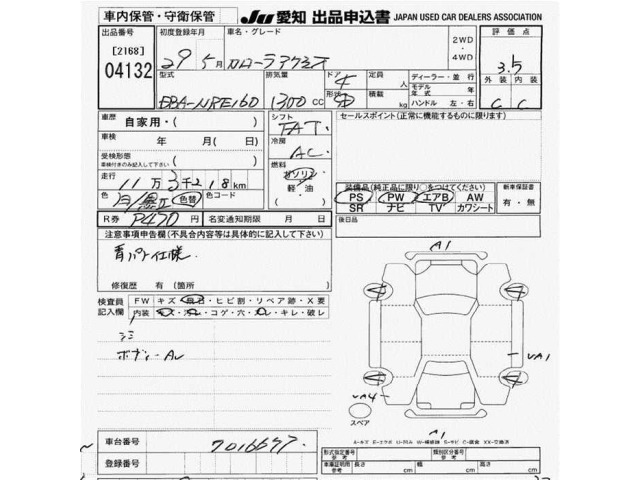 車内保管・守衛保管 JU 愛知 出品申込書 JAPAN USED CAR DEALERS ASSOCIATION
出品番号 初度登録年月 車名・グレード 2WD ・ 4WD 評価点
[2168] 04132 29年5月 カローラアクシオ 3.5
型式 排気量 ドア 定員 ディーラー・並行 外装 内装
DBA-NRE160 1300cc 4 形状 積載 人 kg モデル年式 年 ハンドル 左・右 C C
車歴 自家用・( ) シフト FAT・ セールスポイント(正常に機能するものに限ります)
車検 年 月( ) 冷房 AC・
受検形態 車検付きのみ記入して下さい ( ) 燃料 ガソリン 軽・油
走行 11万3千218km 装備品(純正品に限り〇をつけてください) 新車保証書
色 白/黒II 色替 色コード PS PW エアB AW 有・無
SR ナビ TV カワシート
R券 P470円 名変通知期限 月 日 後日品
注意事項申告欄(不具合内容等は具体的に記入して下さい)
A1
修復歴 有(箇所 )
検査員記入欄 FW キズ・飛石・ヒビ割・リペア跡・X要
内装 キズ・汚レ・コゲ・穴・スレ・キレ・破レ
シミ
ボディーAU
UA1
UA4
スペア
A1
車台番号 7016647
登録番号
型式指定番号 参考 類別区分番号 参考
車庫証明用 参考 長さ cm 幅 cm 高さ cm